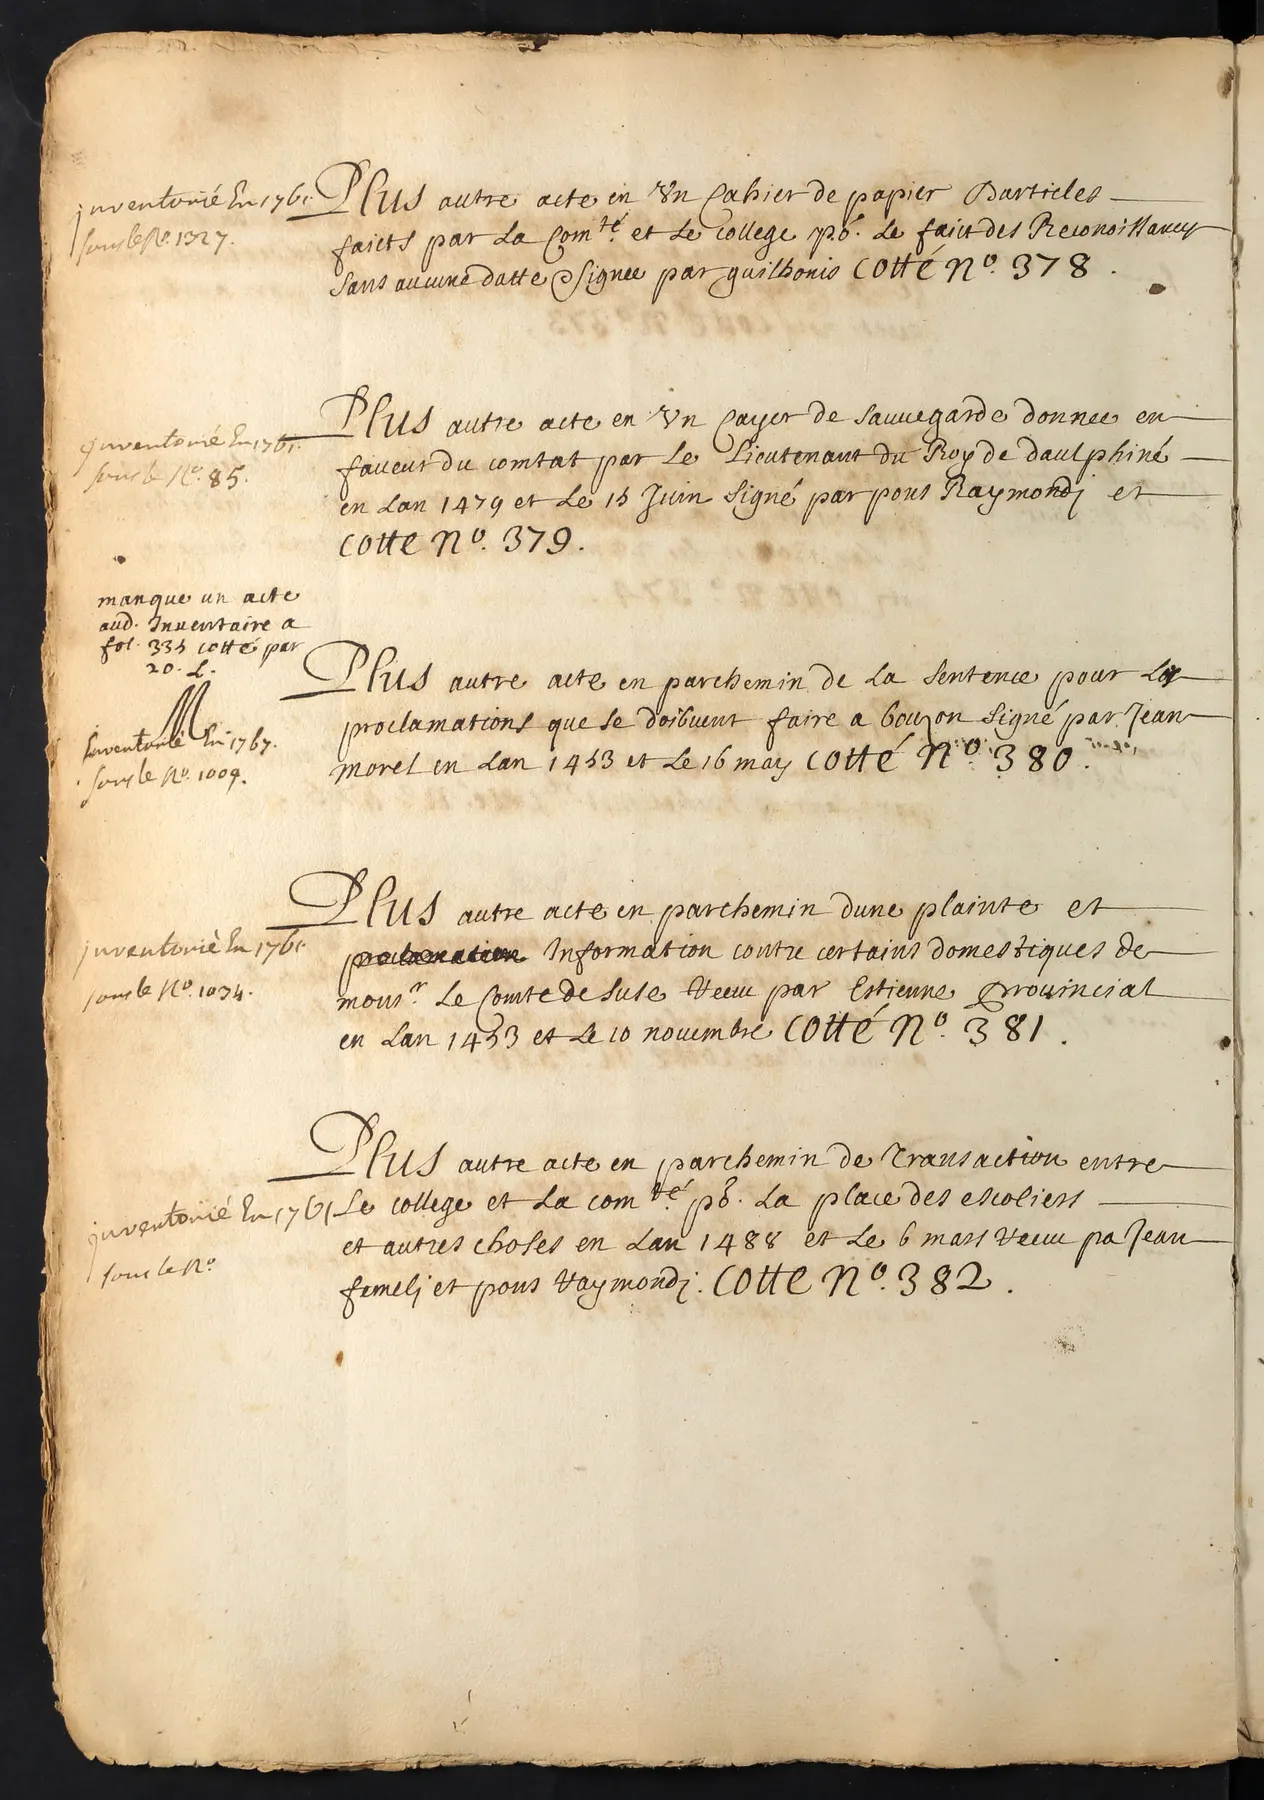 inventorié En 1761
sous le No. 1327.
Plus autre acte en Vn Cahier de papier Darticles
faicts par La Com.té et Le college po. Le faict des Reconoissances
sans aucune datte Signee par guilhonis Cotté No. 378.
inventorié En 1761.
sous le No. 85.
Plus autre acte en Vn Cayer de sauuegarde donnee en
faueur du comtat par Le Lieutenant du Roy de daulphiné
en Lan 1479 et Le 15 Juin Signé par pons Raymondj et
Cotte No. 379.
manque un acte
aud. Inuentaire a
fol. 335 cotté par
20. L.
Inventorié En 1767.
sous le No. 1009.
Plus autre acte en parchemin de La sentence pour Les
proclamations que se doibuent faire a bouzon Signé par Jean
morel en Lan 1453 et Le 16 may Cotté No. 380.
inventorié En 1761
sous le No. 1034.
Plus autre acte en parchemin dune plainte et
proclamation Information contre certains domestiques de
mons.r Le Comte de Suse Receu par Estienne Prouincial
en Lan 1453 et Le 10 nouembre Cotté No. 381.
inventorié En 1761
sous le No
Plus autre acte en parchemin de Transaction entre
Le college et La com.té po. La place des escoliers
et autres choses en Lan 1488 et Le 6 mars Receu pa Jean
femelj et pons Raymondj. Cotte No. 382.